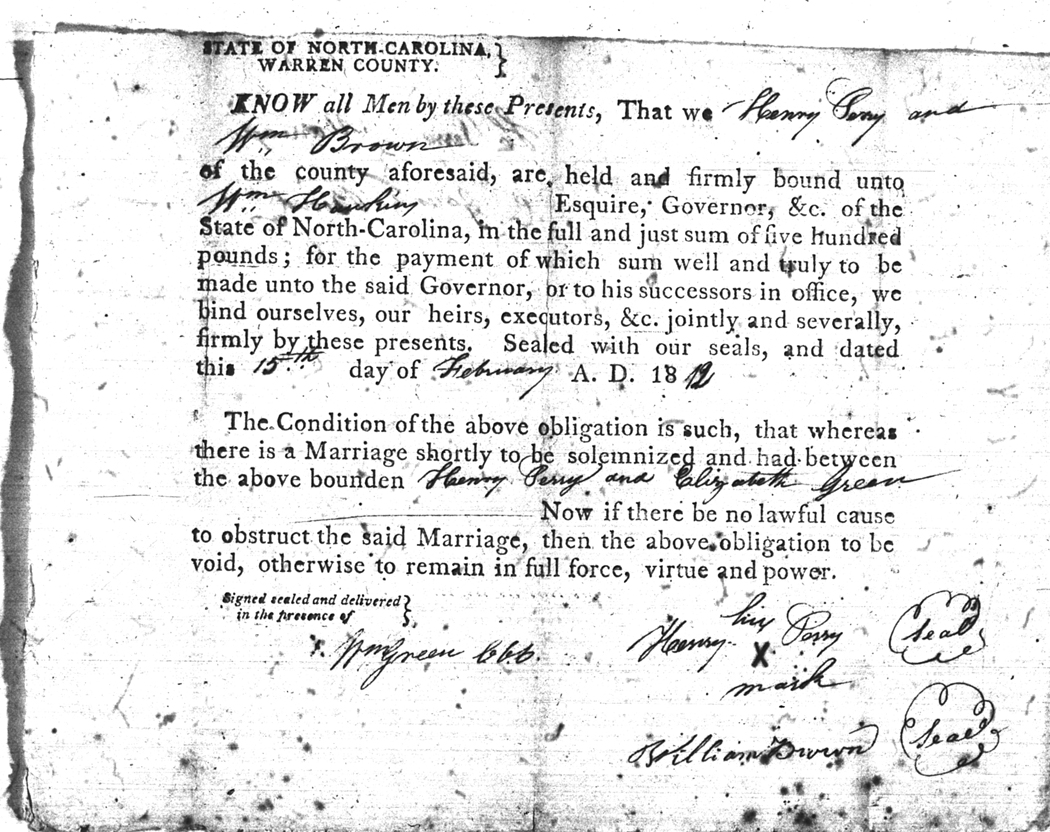 STATE OF NORTH-CAROLINA, }
WARREN COUNTY.
KNOW all Men by these Presents, That we Henry Perry and
Wm Brown
of the county aforesaid, are held and firmly bound unto
Wm Hawkins Esquire, Governor, &c. of the
State of North-Carolina, in the full and just sum of five hundred
pounds; for the payment of which sum well and truly to be
made unto the said Governor, or to his successors in office, we
bind ourselves, our heirs, executors, &c. jointly and severally,
firmly by these presents. Sealed with our seals, and dated
this 15th day of February A. D. 1812
The Condition of the above obligation is such, that whereas
there is a Marriage shortly to be solemnized and had between
the above bounden Henry Perry and Elizabeth Green
Now if there be no lawful cause
to obstruct the said Marriage, then the above obligation to be
void, otherwise to remain in full force, virtue and power.
Signed sealed and delivered }
in the presence of
Wm Green
his
Henry X Perry (Seal)
mark
William Brown (Seal)